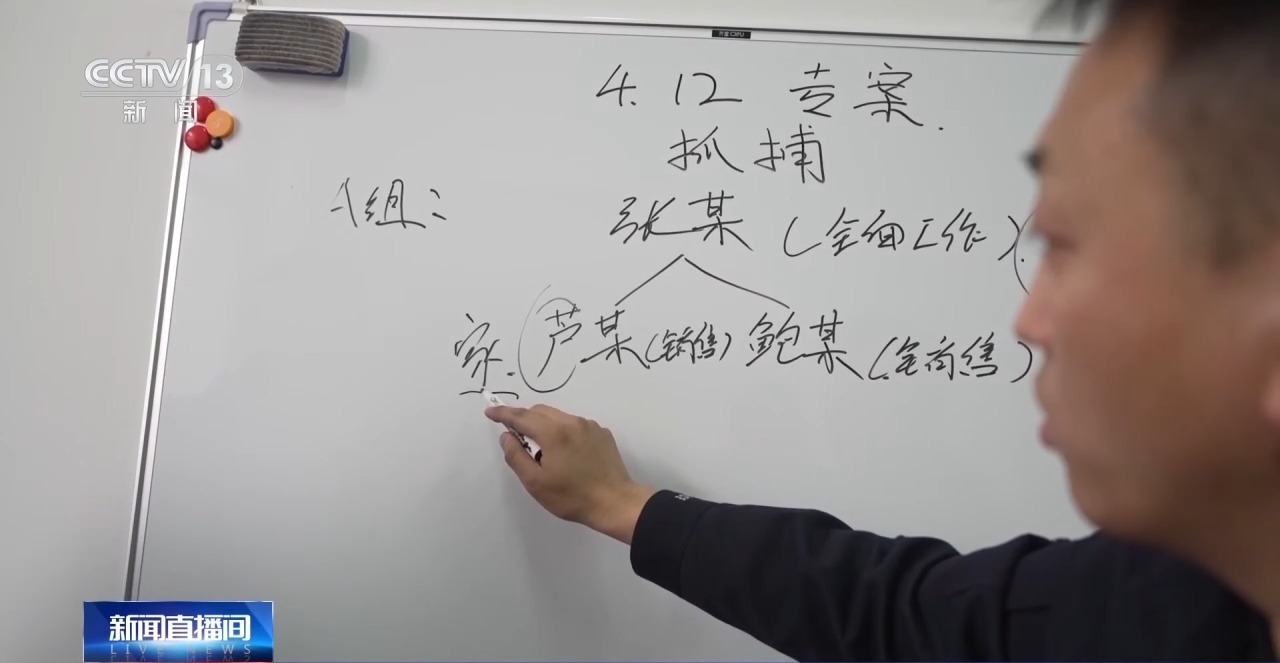 CCTV 13
新闻
4.12 专案.
抓捕
A组:
张某 (全面工作)
家. 芦某 (销售) 鲍某
新闻直播间
LIVE NEWS